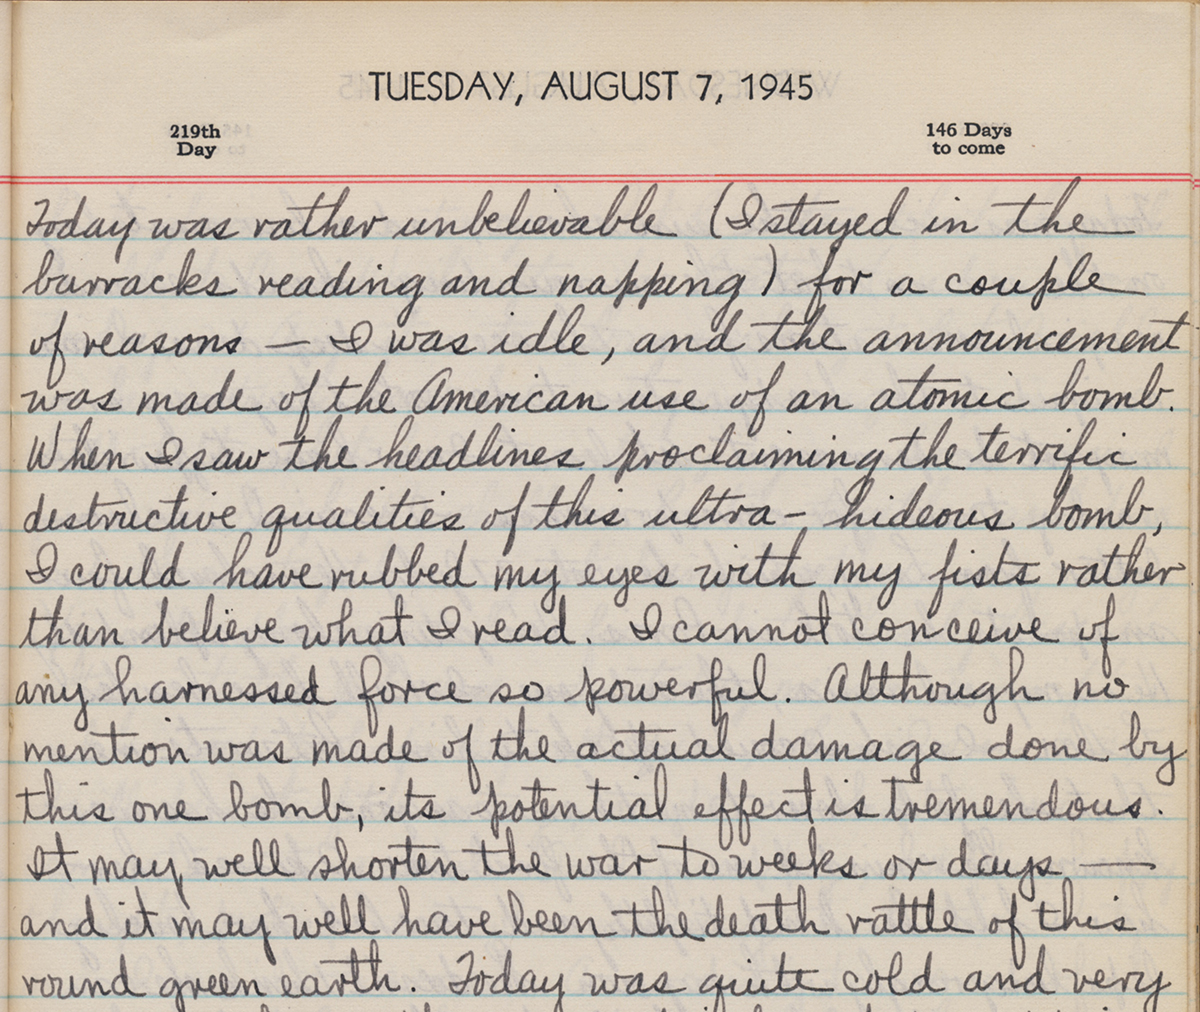 TUESDAY, AUGUST 7, 1945
219th Day
146 Days to come
Today was rather unbelievable (I stayed in the
barracks reading and napping) for a couple
of reasons — I was idle, and the announcement
was made of the American use of an atomic bomb.
When I saw the headlines proclaiming the terrific
destructive qualities of this ultra-hideous bomb,
I could have rubbed my eyes with my fists rather
than believe what I read. I cannot conceive of
any harnessed force so powerful. Although no
mention was made of the actual damage done by
this one bomb, its potential effect is tremendous.
It may well shorten the war to weeks or days —
and it may well have been the death rattle of this
round green earth. Today was quite cold and very